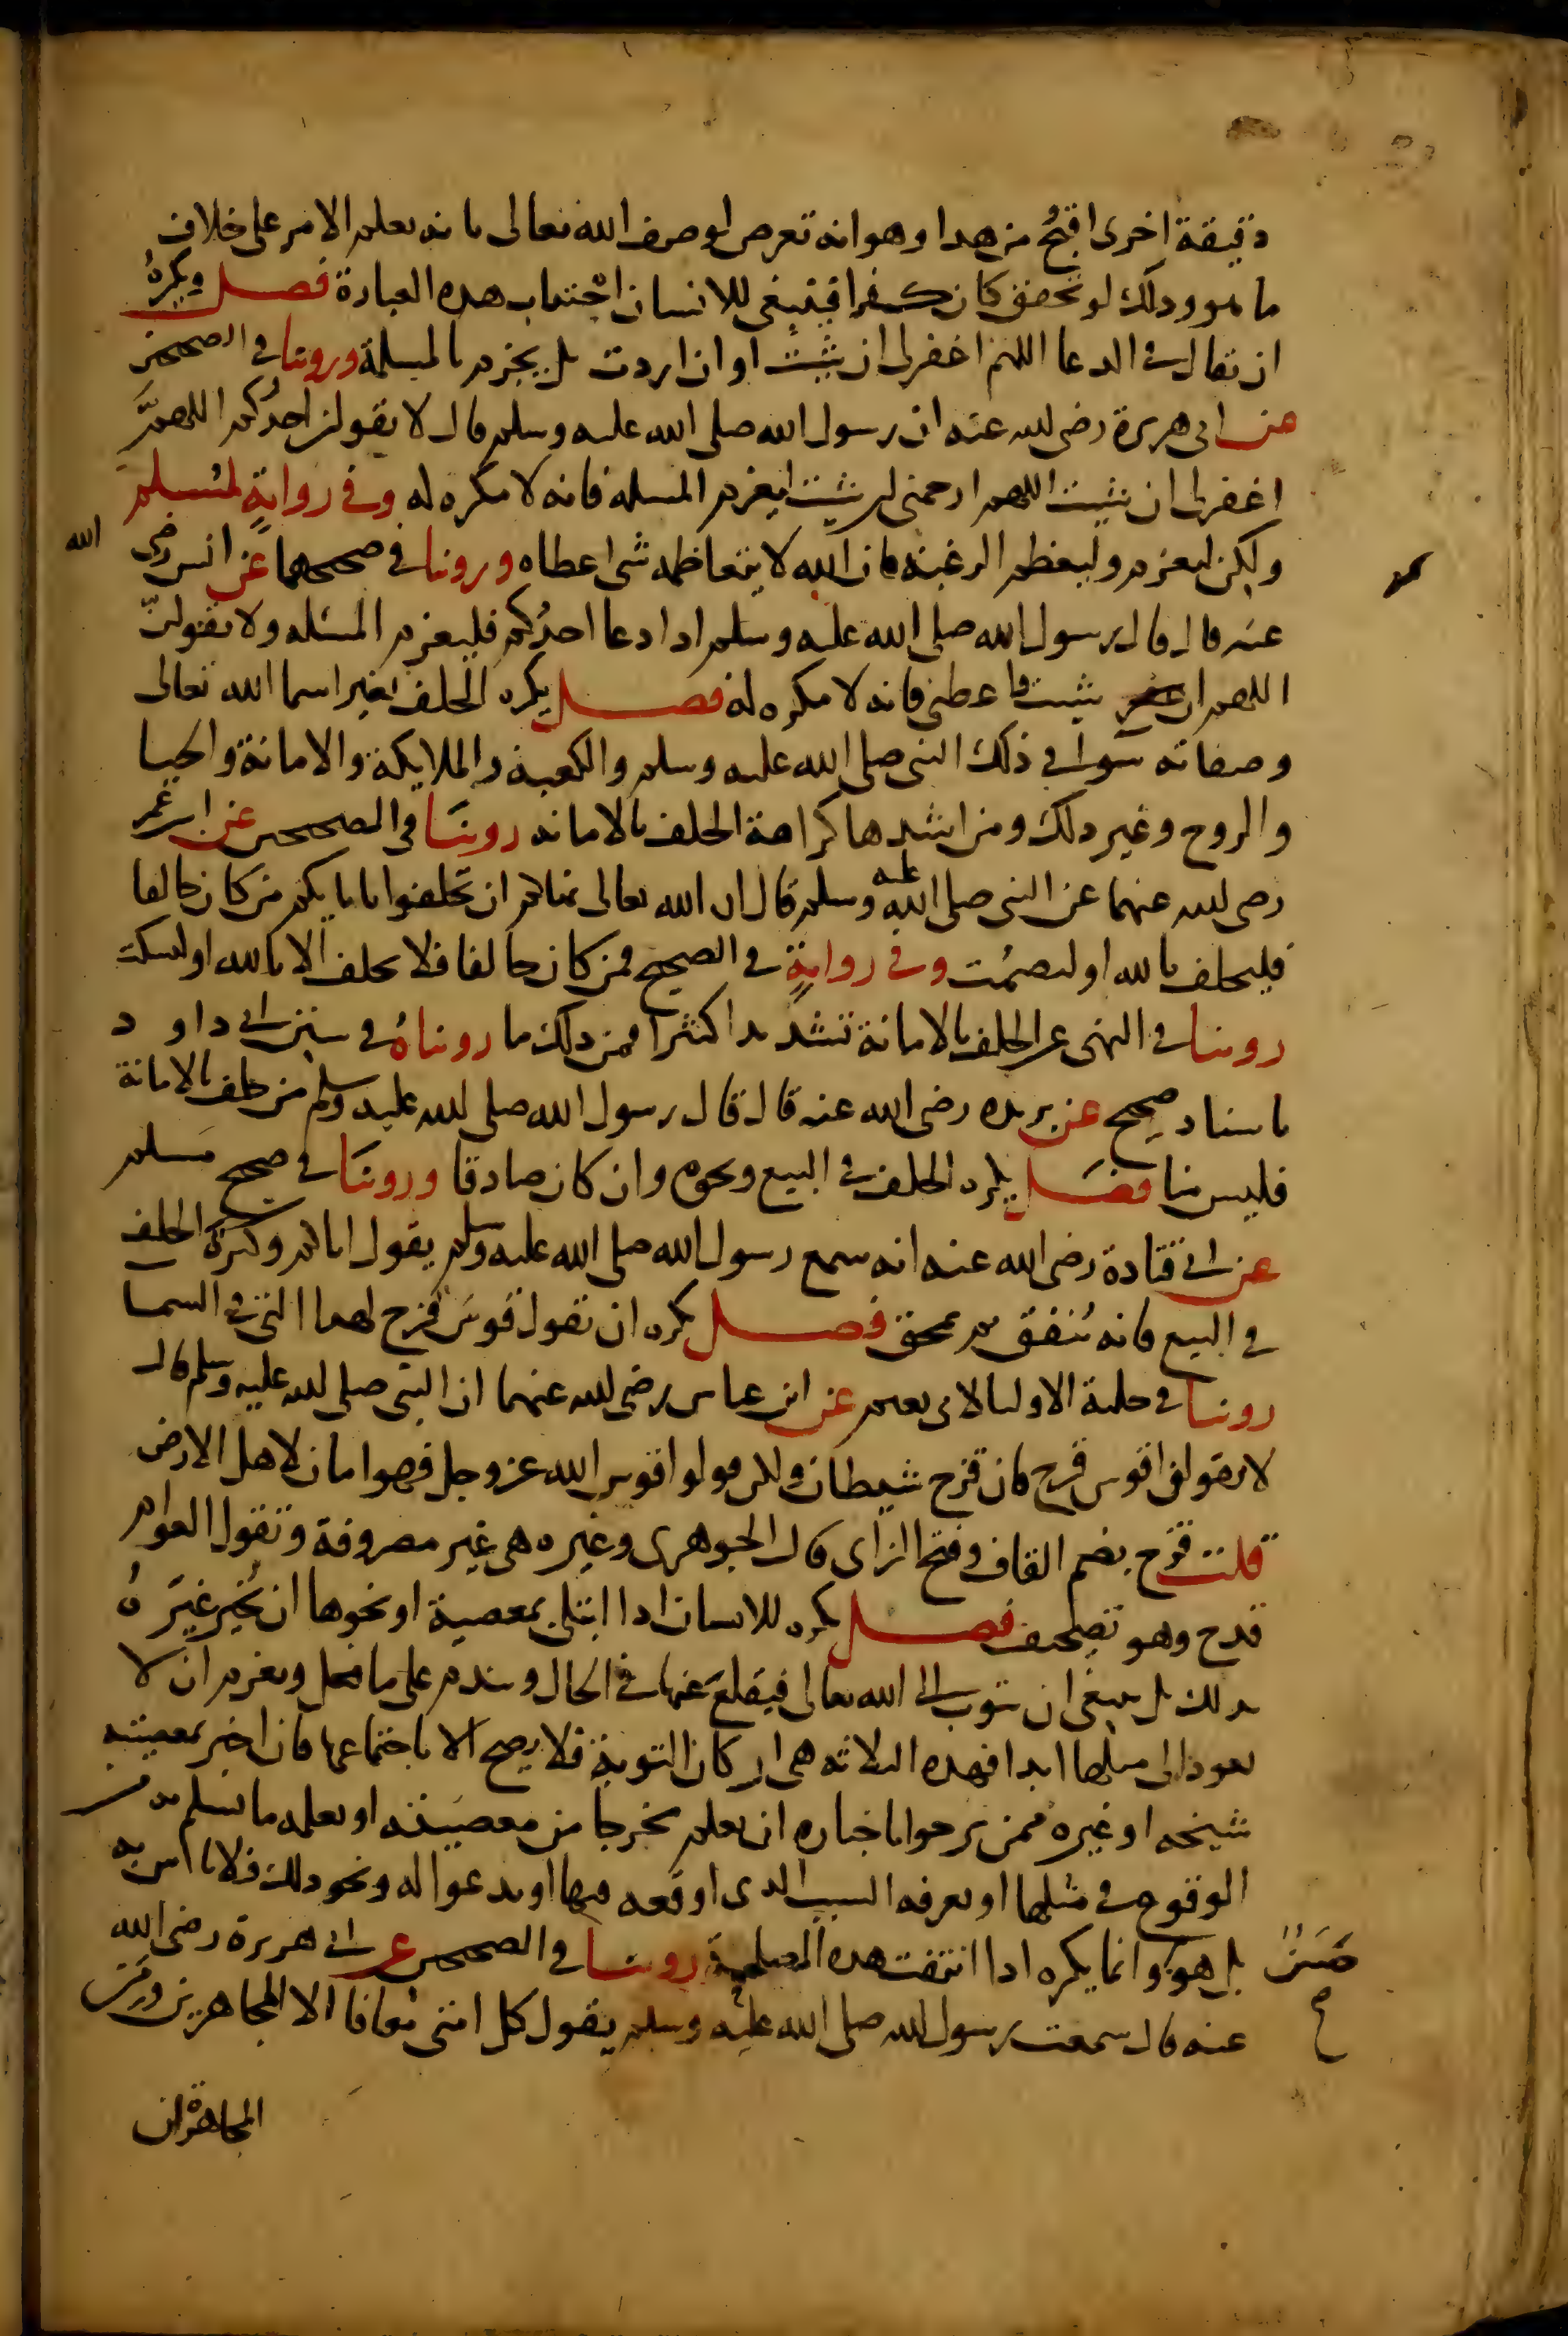 دقيقة اخرى اقبح من هدا وهو انه تعرض لوصف الله تعالى بانه يعلم الامر على خلاف
ما هو ودلك لو تحقق كان كفرا فينبغي للانسان اجتناب هده العبارة فصل ويكره
ان يقال في الدعا اللهم اغفر لي ان شيت او ان اردت بل يجزم بالمسلة وروينا في الصحيحين
عن ابي هريرة رضي الله عنه ان رسول الله صلى الله عليه وسلم قال لا يقولن احدكم اللهم
اغفر لي ان شيت اللهم ارحمني ان شيت ليعزم المسله فانه لا مكره له وفي رواية لمسلم
ولكن ليعزم وليعظم الرغبة فان الله لا يتعاظمه شي اعطاه وروينا في صحيحهما عن انس رضي الله
عنه قال قال رسول الله صلى الله عليه وسلم ادا دعا احدكم فليعزم المسئله ولا يقولن
اللهم ان شيت فاعطني فانه لا مكره له فصل يكره الحلف بغير اسما الله تعالى
وصفاته سوا في ذلك النبي صلى الله عليه وسلم والكعبة والملايكة والامانة والحيا
والروح وغير دلك ومن اشدها كراهة الحلف بالامانه روينا في الصحيحين عن ابن عمر
رضي الله عنهما عن النبي صلى الله عليه وسلم قال ان الله تعالى ينهاكم ان تحلفوا بابايكم من كان حالفا
فليحلف بالله او ليصمت وفي رواية في الصحيح فمن كان حالفا فلا يحلف الا بالله او ليسكت
روينا في النهي عن الحلف بالامانة تشديدا كثيرا فمن دلك ما رويناه في سنن ابي داود
باسناد صحيح عن بريده رضي الله عنه قال قال رسول الله صلى الله عليه وسلم من حلف بالامانة
فليس منا فصل يكره الحلف في البيع ونحوه وان كان صادقا وروينا في صحيح مسلم
عن ابي قتادة رضي الله عنه انه سمع رسول الله صلى الله عليه وسلم يقول اياكم وكثرة الحلف
في البيع فانه ينفق ثم يمحق فصل يكره ان يقول قوس قزح لهدا التي في السما
روينا في حلية الاوليا لابي نعيم عن ابن عباس رضي الله عنهما ان النبي صلى الله عليه وسلم قال
لا تقولوا قوس قزح فان قزح شيطان ولكن قولوا قوس الله عز وجل فهو امان لاهل الارض
قلت قزح بضم القاف وفتح الزاي قال الجوهري وغيره هي غير مصروفة وتقول العوام
قدح وهو تصحيف فصل يكره للانسان ادا ابتلي بمعصية او نحوها ان يخبر غيره
بدلك بل ينبغي ان يتوب الى الله تعالى فيقلع عنها في الحال ويندم على ما فعل ويعزم ان لا
يعود الى مثلها ابدا فهده الثلاثه هي اركان التوبة فلا يصح الا باجتماعها فان اخبر بمعصيته
شيخه او غيره ممن يرجوا باخباره ان يعلم مخرجا من معصيته او يعلمه ما يسلم به من
الوقوع في مثلها او يعرفه السبب الدي اوقعه فيها او يدعوا له ونحو دلك فلا باس به
بل هو حسن وانما يكره ادا انتفت هده المصلحة روينا في الصحيحين عن ابي هريرة رضي الله
صح
عنه قال سمعت رسول الله صلى الله عليه وسلم يقول كل امتي معافا الا المجاهرين ومن
المجاهرة ان